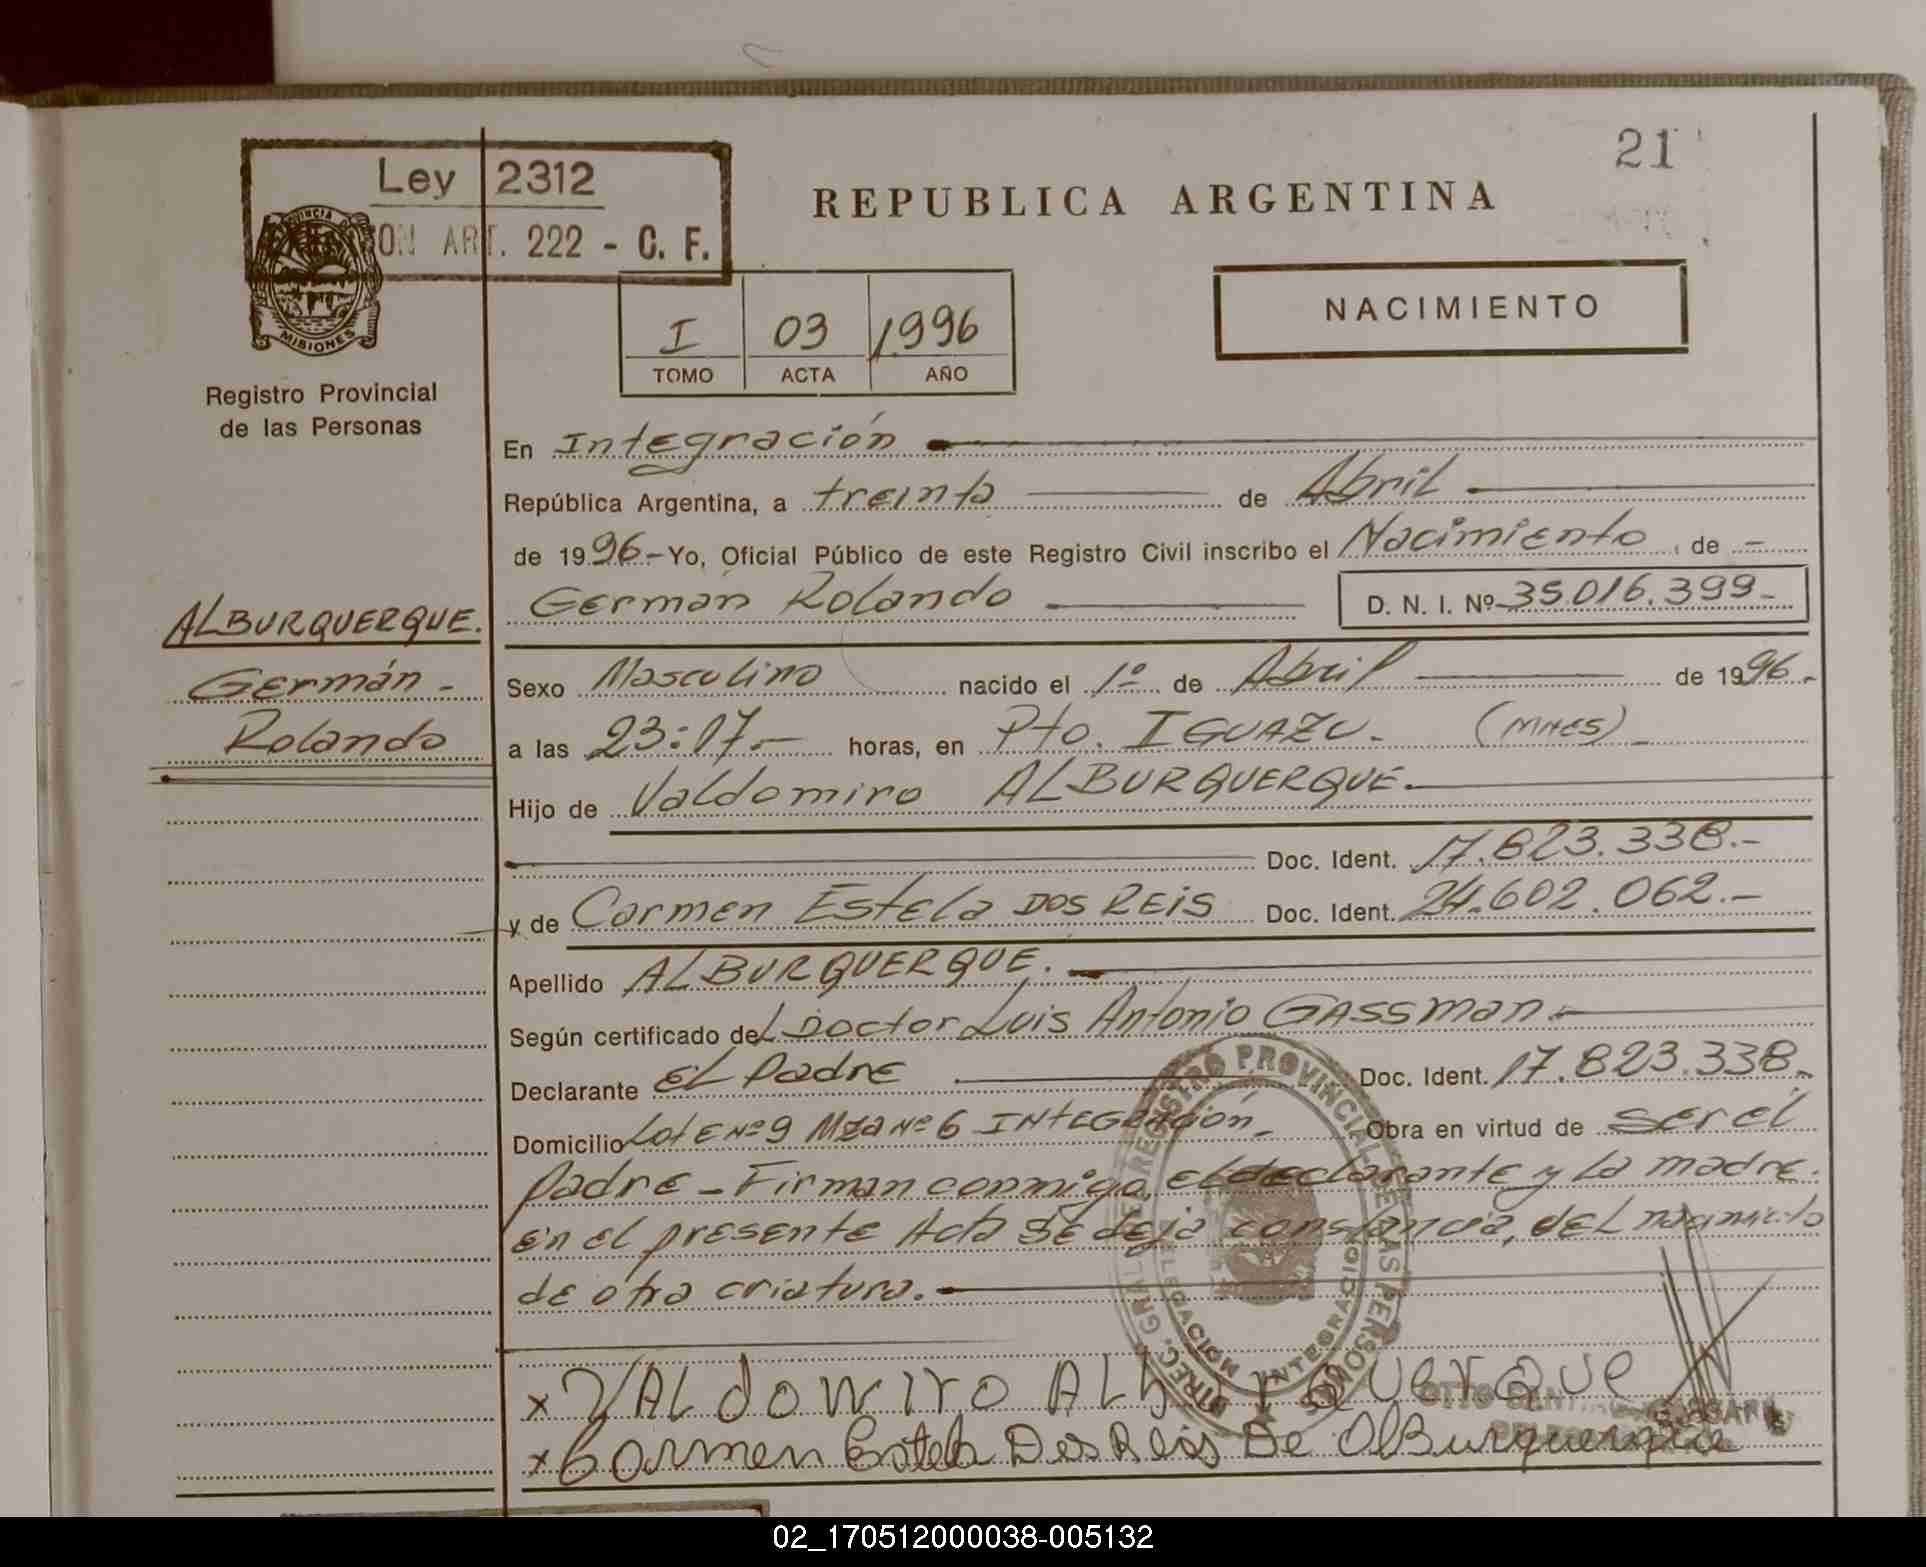 21
Ley 2312
ON ART. 222 - C. F.
REPUBLICA ARGENTINA
PROVINCIA
MISIONES
NACIMIENTO
I 03 1996
TOMO ACTA AÑO
Registro Provincial
de las Personas
En Integración
República Argentina, a treinta de Abril
de 1996.- Yo, Oficial Público de este Registro Civil inscribo el Nacimiento, de -
Germán Rolando D. N. I. Nº 35.016.399-
ALBURQUERQUE.
Germán -
Rolando
Sexo Masculino nacido el 1º de Abril de 1996.
a las 23:17.- horas, en Pto. IGUAZU. (MNES) -
Hijo de Valdomiro ALBURQUERQUE.
Doc. Ident. 17.823.338.-
y de Carmen Estela DOS REIS Doc. Ident. 24.602.062.-
Apellido ALBURQUERQUE.
Según certificado del Doctor Luis Antonio GASSMAN
Declarante El Padre Doc. Ident. 17.823.338.
Domicilio Lote Nº 9 Mza Nº 6 INTEGRACIÓN - Obra en virtud de ser el
padre - Firman conmigo el declarante y la madre.
en el presente Acta Se deja constancia, del
de otra criatura.
DIREC. GRAL. DE REGISTRO PROVINCIAL DE LAS PERSONAS
DELEGACION INTEGRACION
x VALdOMIrO ALburquerque
OTTO
x Carmen Estela Dos Reis De Alburquerque
02_170512000038-005132